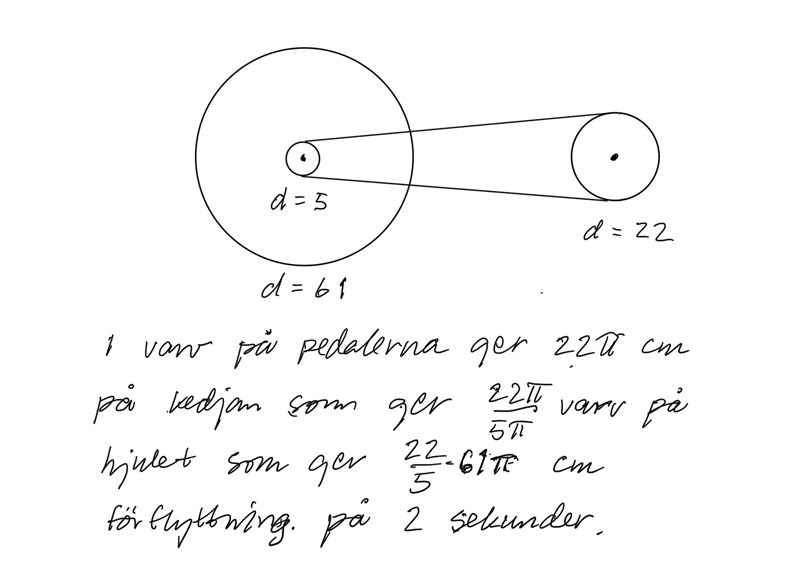 d = 5
d = 22
d = 61
1 varv på pedalerna ger 22π cm
på kedjan som ger 22π/5π varv på
hjulet som ger 22/5 · 61π cm
förflyttning. på 2 sekunder.